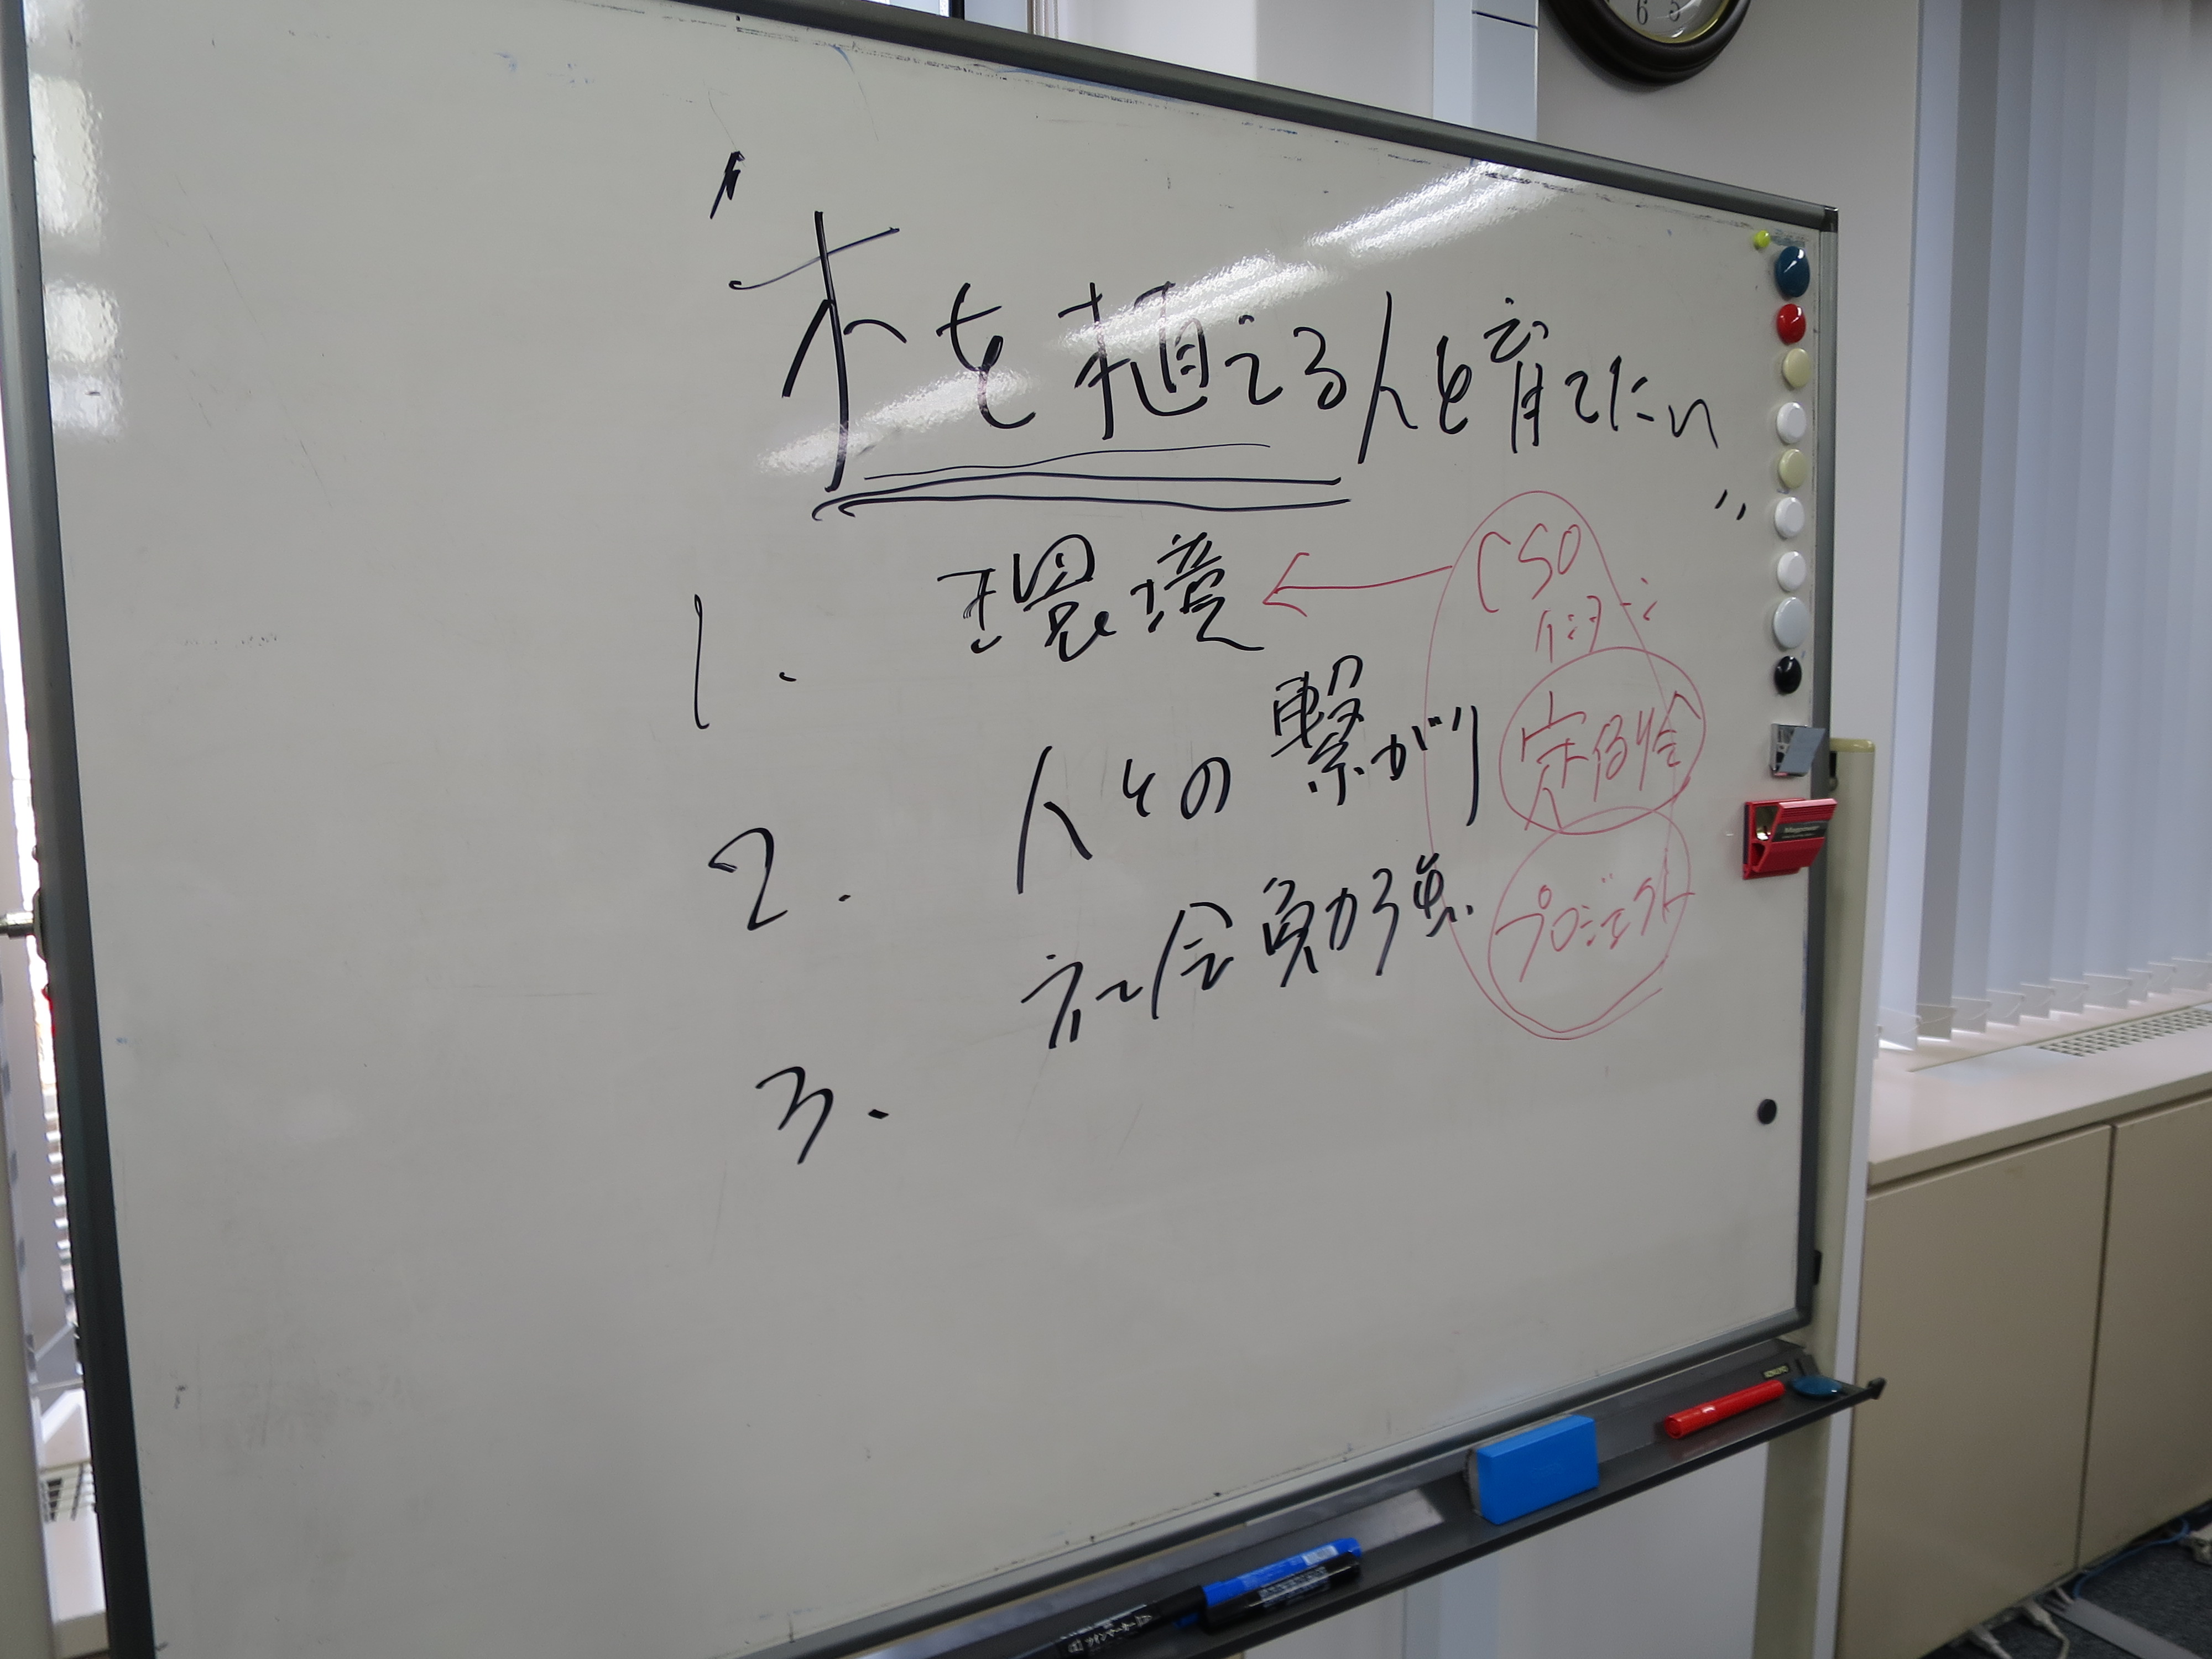 "木を植える人を育てたい"
1. 環境
2. 人との繋がり
3. 社会勉強
CSO
定例会
プロジェクト